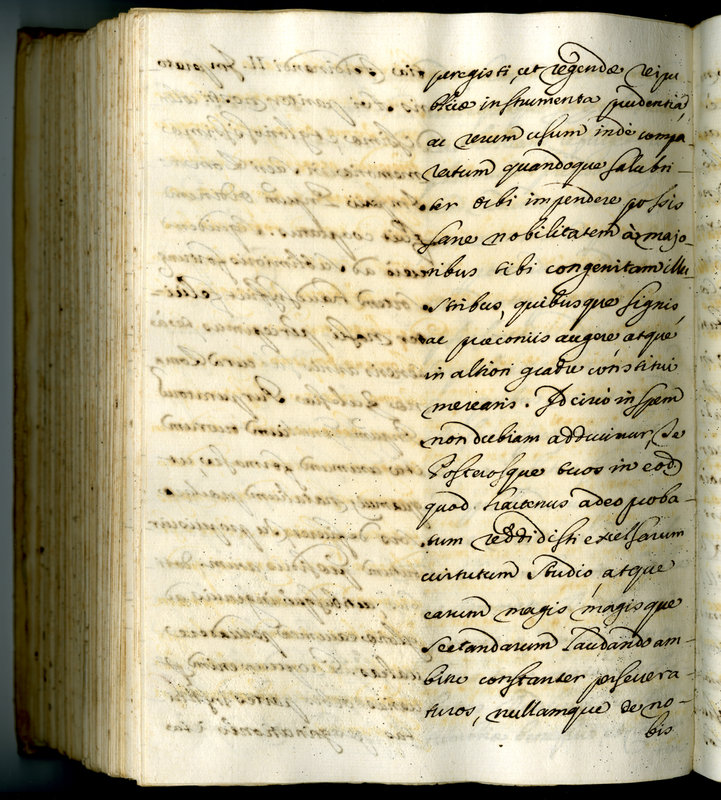 peregisti, et regendæ reipu-
blicæ instrumenta prudentiã
ac rerum usum inde compa-
ratum quandoque salubri-
ter orbi impendere possis
sane nobilitatem à majo-
ribus tibi congenitam illu-
stribus, quibusque signis,
ac præconiis augere atque
in altiori gradu constitui
merearis. Idcirco in spem
non dubiam adducimur, Te
Posterosque tuos in eod
quod hactenus adeo proba-
tum reddidisti excelsarum
virtutum studio, atque
earum magis magisque
sectandarum laudando am-
bitu constanter persevera-
turos, nullamque de no-
bis